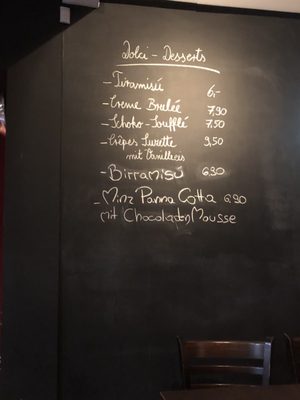 Dolci - Desserts
- Tiramisú 6,-
- Creme Brulée 7,90
- Schoko-Soufflé 7,50
- Crêpes Suzette 9,50
mit Vanilleeis
- Birramisú 6,90
- Minz Panna Cotta 6,90
mit Chocoladen Mousse